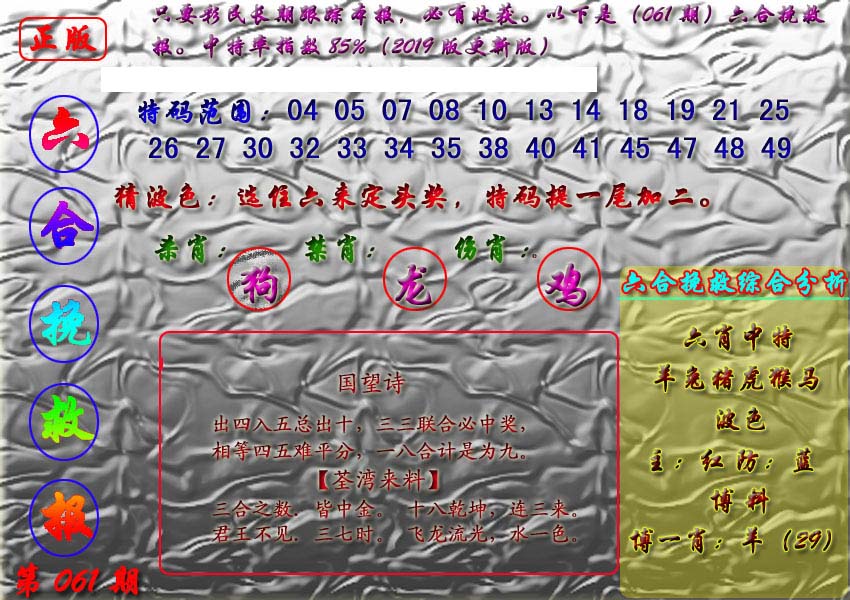 只要彩民长期跟踪本报，必有收获。以下是（061期）六合挽救
报。中特率指数85%（2019版更新版）
正版
六
合
挽
救
报
第061期
特码范围：04 05 07 08 10 13 14 18 19 21 25
26 27 30 32 33 34 35 38 40 41 45 47 48 49
猜波色：选住六来定头奖，特码提一尾加二。
杀肖： 禁肖： 伤肖：。
狗 龙 鸡
国望诗
出四入五总出十，三三联合必中奖，
相等四五难平分，一八合计是为九。
【荃湾来料】
三合之数．皆中金。 十八乾坤，连三来。
君王不见．三七时。 飞龙流光，水一色。
六合挽救综合分析
六肖中特
羊兔猪虎猴马
波色
主：红防：蓝
博料
博一肖：羊（29）